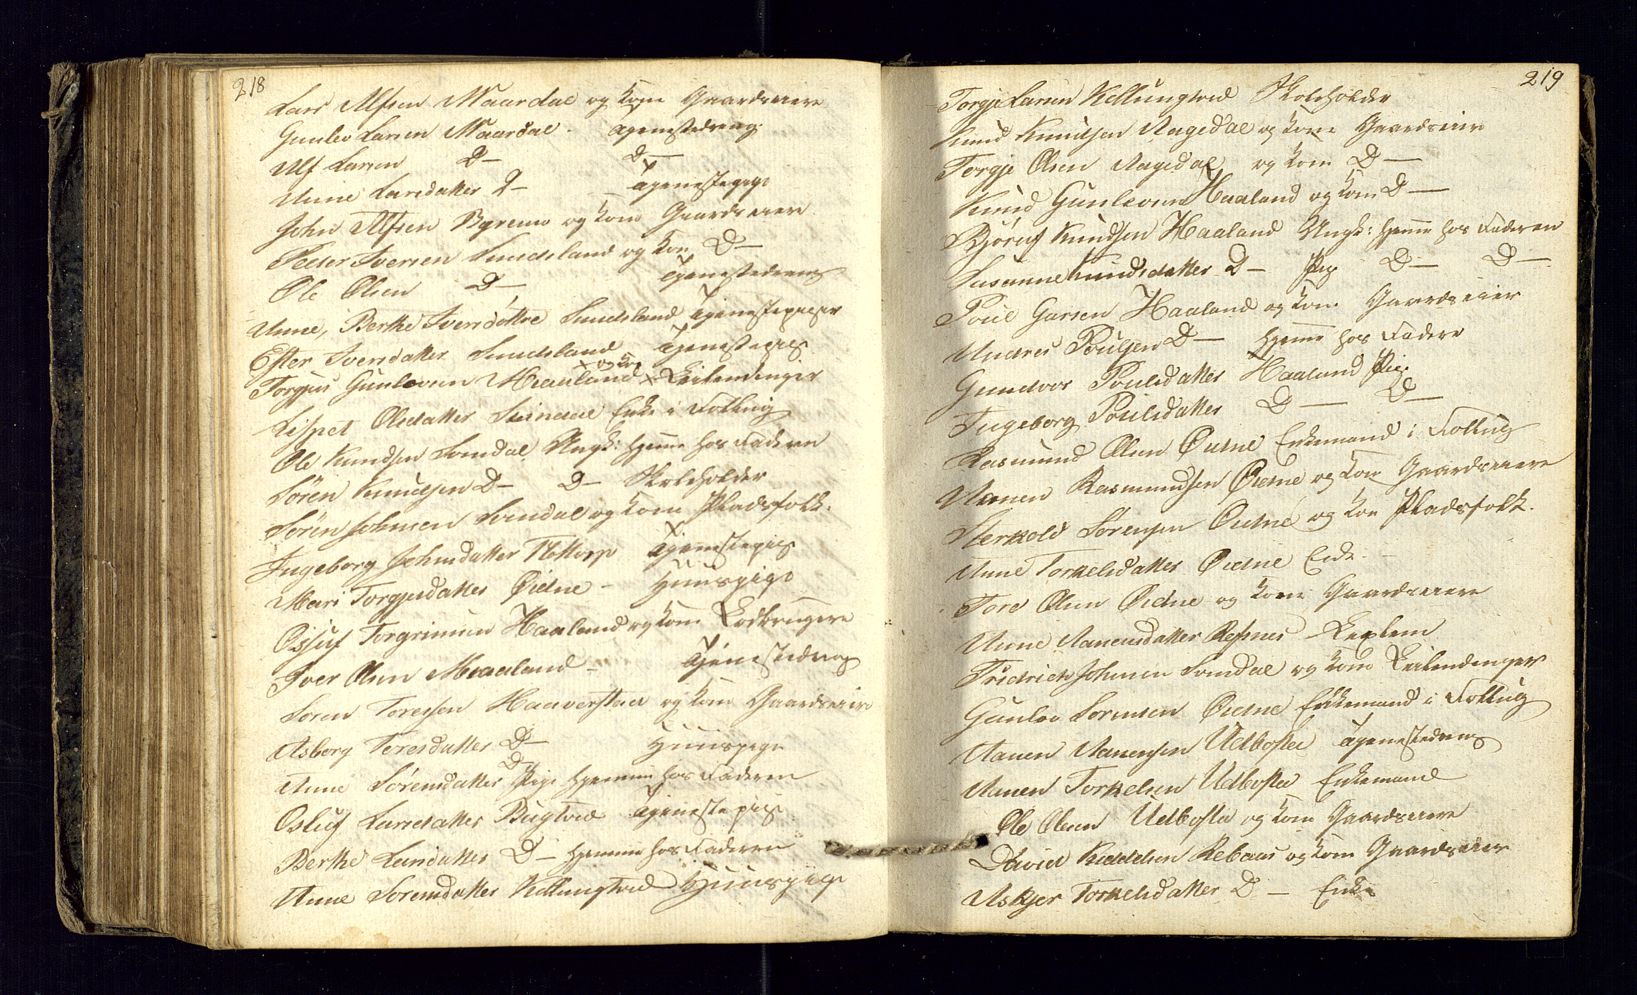 218
Lars Alfsen Maardal og Kone Gaardeiere
Gunlev Larsen Maardal - Tjenestedreng
Alf Larsen D- D-
Anne Larsdatter D- Tjenestepige
John Alfsen Byremo og Kone Gaardeiere
Peder Iversen Sundsland og Kone D-
Ole Olsen D- Tjenestedreng
Anne, Berthe Iversdøttre Sundsland Tjenestepiger
Ester Iversdatter Sundsland Tjenestepige
Torgius Gunlevsen Haaland og Kone Leilendinger
Lispet Olsdatter Svindal Enke i Follug
Ole Knudsen Svindal Ungk: Hjemme hos Faderen
Sören Knudsen D- D- Skoleholder
Sören Johnsen Svindal og Kone Pladsfolk.
Ingeborg Johnsdatter Tjenestepige
Mari Torgjusdatter Öidne - Huuspige
Osluf Torgrimsen Haaland og Kone Lodbrugere
Iver Olsen Haaland - Tjenestedreng
Sören Toresen Haaverstad og Kone Gaardeiere
Asborg Toresdatter D- Huuspige
Anne Sörensdatter D- Pige Hjemme hos Faderen
Osluf Larsdatter Bugtved Tjenestepige
Berthe Larsdatter D- Hjemme hos Faderen
Anne Sörensdatter Kittungtved Huuspige
219
Torgje Larsen Kittungtved Skoleholder
Knud Knudsen Aagedal og Kone Gaardeiere
Torgje Olsen Aagedal og Kone D-
Knud Gunlevsen Haaland og Kone D-
Björnf Knudsen Haaland Ungk: Hjemme hos Faderen
Susanne Knudsdatter D- Pige D- D-
Poul Haaland og Kone Gaardeiere
Andres Poulsen D- Hjemme hos Fadere
Gundvor Poulsdatter Haaland Pige
Ingeborg Poulsdatter D- D-
Rasmund Olsen Öidne Enkemand i Follug
Aanen Rasmundsen Öidne og Kone Gaardeiere
Sterkold Sörensen Öidne og Kone Pladsfolk.
Anne Torkelsdatter Öidne Enke -
Tore Olsen Öidne og Kone Gaardeiere
Anne Aanensdatter Refsnes - Leglem
Fridrich Johnsen Svindal og Kone Leilendinger
Gunlev Sörensen Öidne Enkemand i Follug
Aanen Aanensen Udbøsted Tjenestedreng
Aanen Torkelsen Udbøsted Enkemand
Ole Olsen Udbøsted og Kone Gaardeiere
David Kiddelsen Rebaas og Kone Gaardeiere
Askjer Torkelsdatter D- Enke